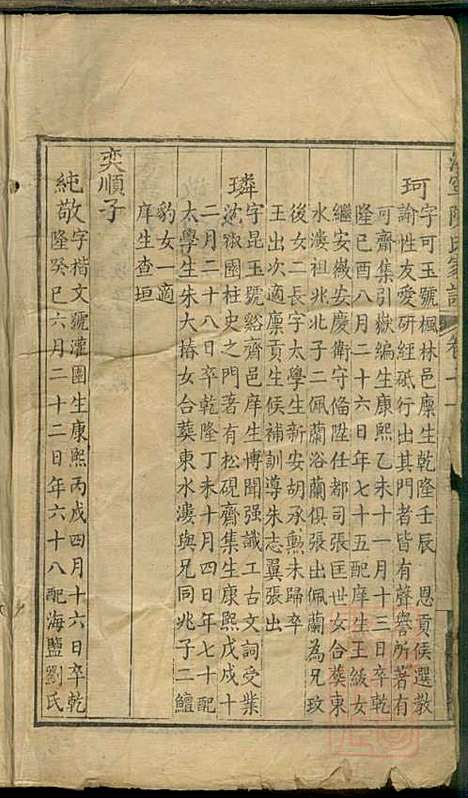 海寧陳氏家譜 卷十一
珂
字可玉號楓林邑廩生乾隆壬辰 恩貢候選教
諭性友愛研經砥行出其門者皆有聲譽所著有
可齋集引嶽編生康熙乙未十一月十三日卒乾
隆己酉八月二十六日年七十五配庠生王級女
繼安徽安慶衛守俻陞任都司張匡世女合葬東
水漊祖兆北子二佩蘭浴蘭俱張出佩蘭為兄玟
後女二長字太學生新安胡承勲未歸卒
王出次適廩貢生候補訓導朱志翼張出
璘
字昆玉號谿齊邑庠生博聞强識工古文詞受業
沈椒園柱史之門著有松硯齊集生康熙戊戌十
二月二十八日卒乾隆丁未十月四日年七十配
太學生朱大椿女合葬東水漊與兄同兆子二鱣
豹女一適
庠生查垣
奕順子
純敬
字楷文號灌園生康熙丙戌四月十六日卒乾
隆癸巳六月二十二日年六十八配海鹽劉氏